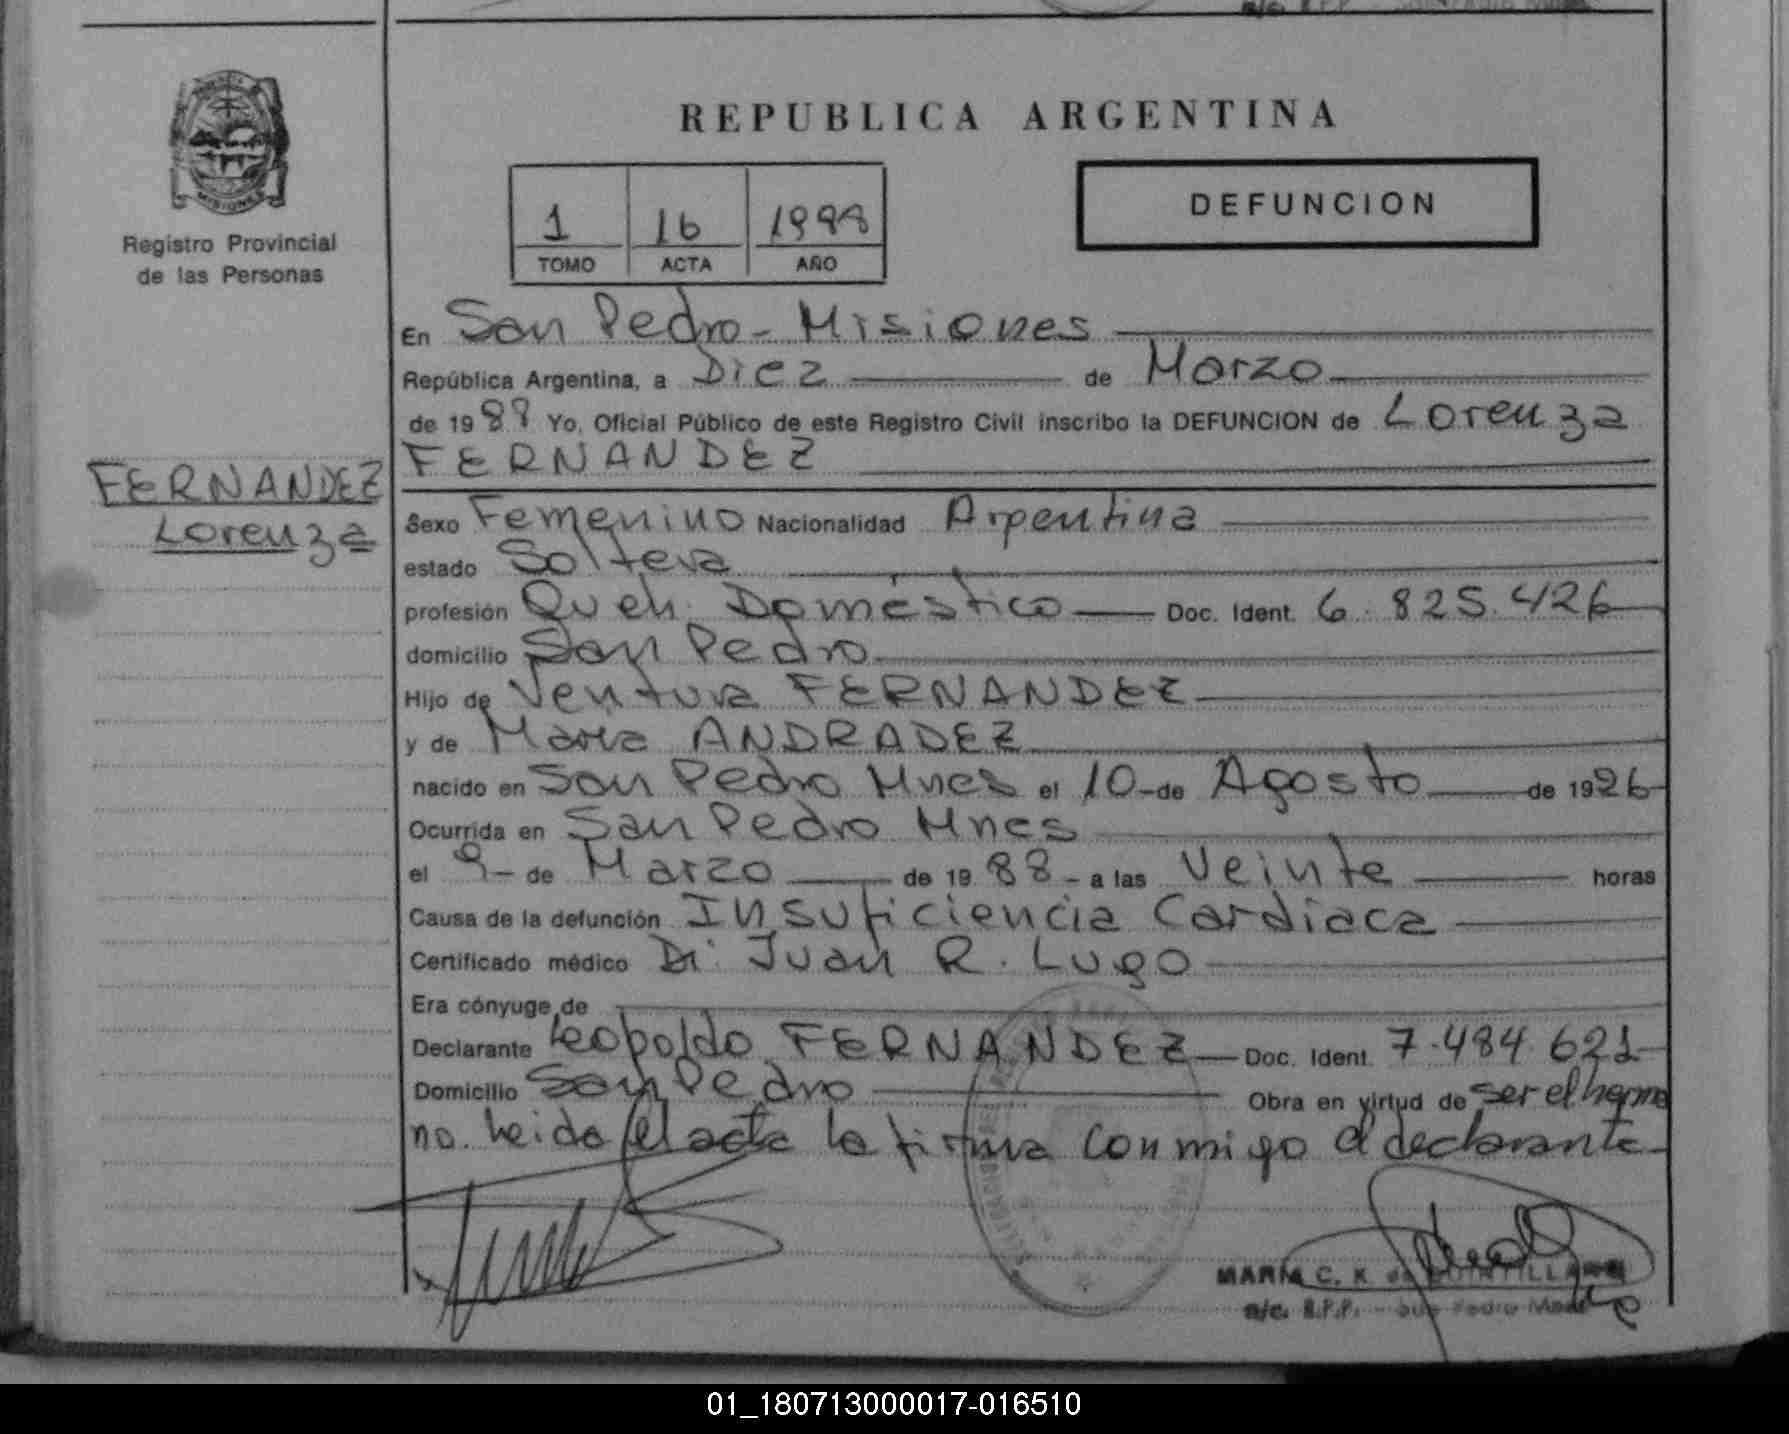 REPUBLICA ARGENTINA
MISIONES
Registro Provincial
de las Personas
1 16 1988
TOMO ACTA AÑO
DEFUNCION
En San Pedro - Misiones
República Argentina, a Diez de Marzo
de 1988 Yo, Oficial Público de este Registro Civil inscribo la DEFUNCION de Lorenza
FERNANDEZ
FERNANDEZ
Lorenza
Sexo Femenino Nacionalidad Argentina
estado Soltera
profesión Queh. Doméstico Doc. Ident. 6.825.426
domicilio San Pedro
Hijo de Ventura FERNANDEZ
y de María ANDRADEZ
nacido en San Pedro Mnes el 10 - de Agosto de 1926
Ocurrida en San Pedro Mnes
el 9 - de Marzo de 1988 - a las Veinte horas
Causa de la defunción Insuficiencia Cardiaca
Certificado médico Dr. Juan R. Lugo
Era cónyuge de
Declarante Leopoldo FERNANDEZ Doc. Ident. 7.484.621
Domicilio San Pedro Obra en virtud de ser el herma
no. Leida el acta la firma conmigo el declarante
MARIA C. K. de QUINTILLAN
a/c. R.P.P. - San Pedro Mnes
01_180713000017-016510